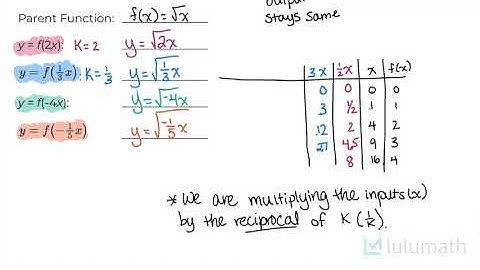 output
stays same
Parent Function: f(x)=√x
y = f(2x): K=2 y=√2x
y = f(1/3x): K=1/3 y=√1/3x
y = f(-4x): y=√-4x
y = f(-1/5x) y=√-1/5x
3x 1/2x x f(x)
0 0 0 0
3 1/2 1 1
12 2 4 2
27 4.5 9 3
8 16 4
* We are multiplying the inputs (x)
by the reciprocal of K (1/K).
lulumath